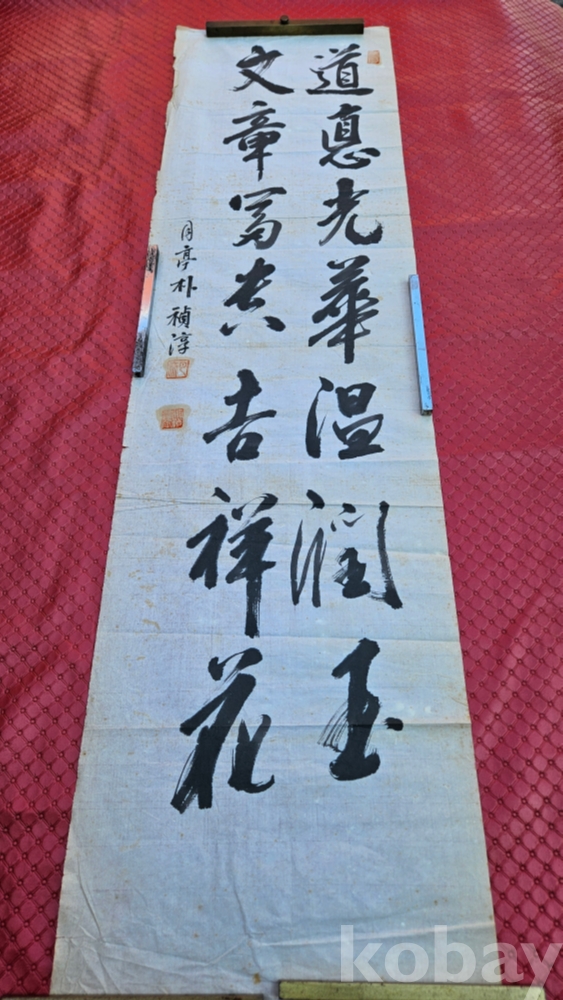 道悳光華温潤玉
文章富貴吉祥花
月亭朴禎淳
kobay